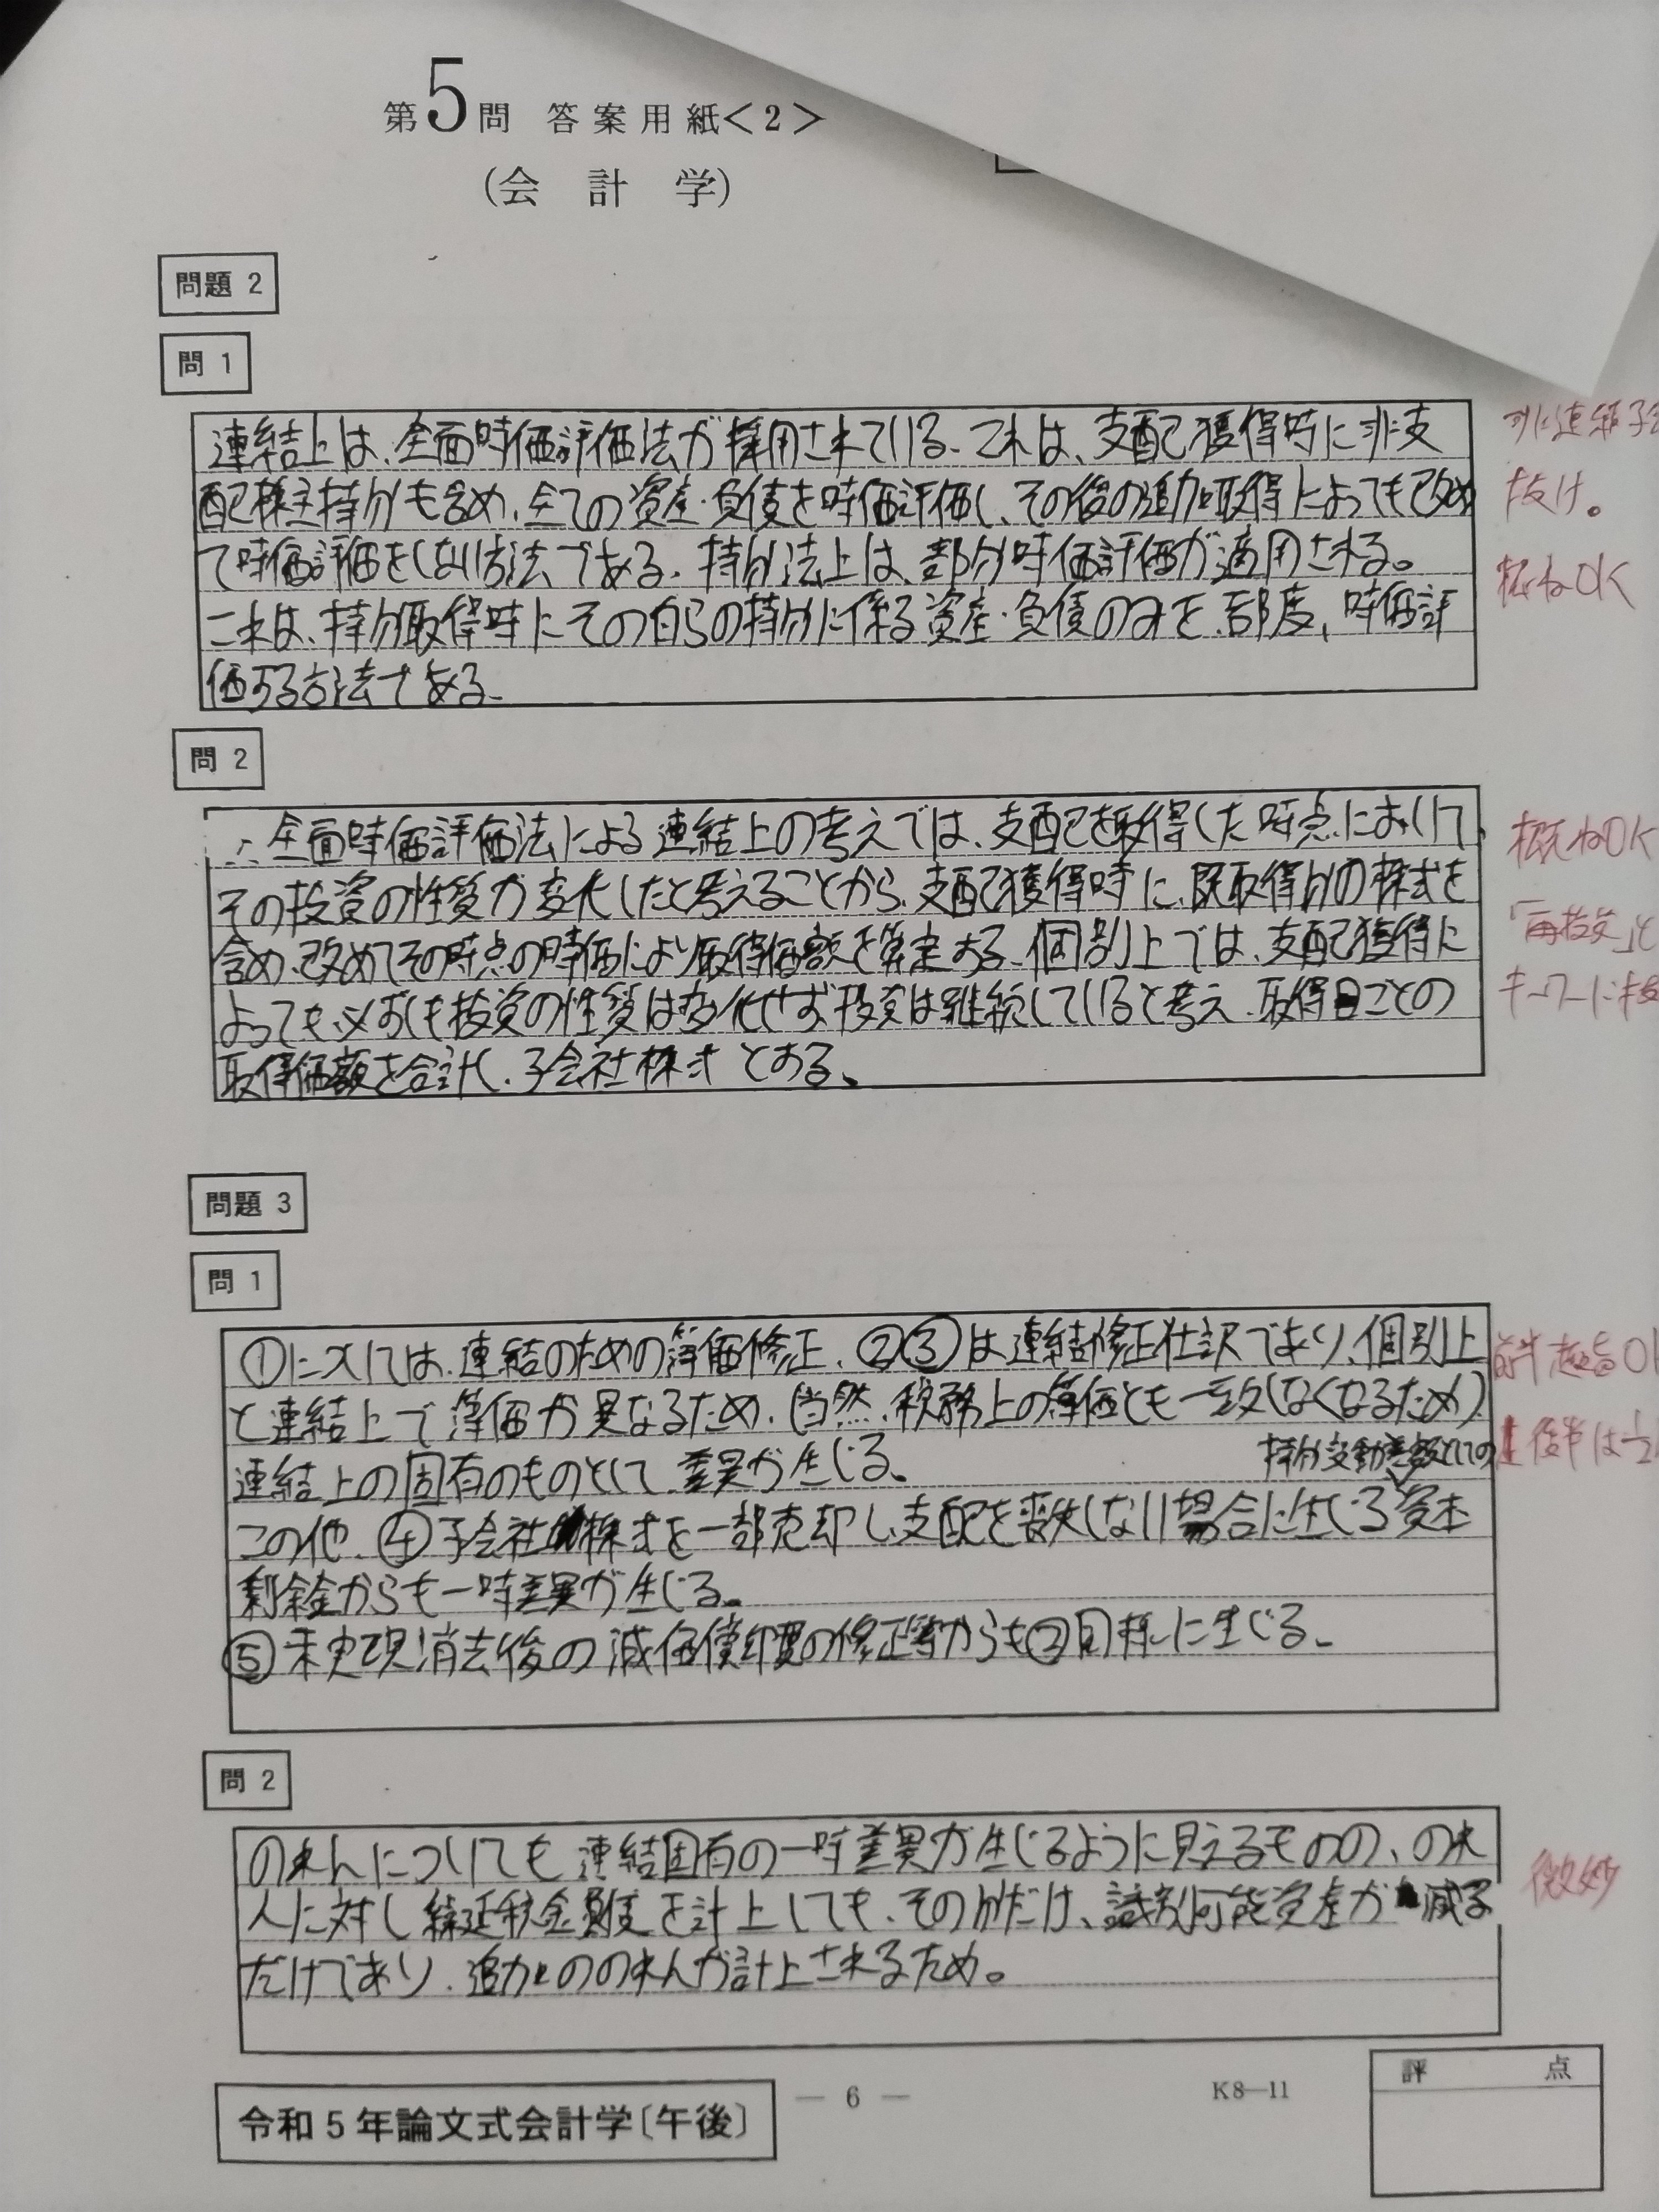 第5問 答案用紙<2>
(会計学)
問題 2
問 1
連結上は、全面時価評価法が採用されている。これは、支配獲得時に非支
配株主持分も含め、全ての資産・負債を時価評価し、その後の追加取得によっても改め
て時価評価をしない方法である。持分法上は、部分時価評価が適用される。
これは、持分取得時にその自らの持分に係る資産・負債のみを、都度、時価評
価する方法である。
連結子会
抜け。
概ねOK
問 2
全面時価評価法による連結上の考えでは、支配を取得した時点において、
その投資の性質が変化したと考えることから、支配獲得時に、既取得分の株式を
含め、改めてその時点の時価により取得価額を算定する。個別上では、支配獲得に
よっても、必ずしも投資の性質は変化せず投資は継続していると考え、取得日ごとの
取得価額を合計し、子会社株式とする。
概ねOK
「再投資」と
キーワード
問題 3
問 1
①については、連結のための簿価修正、②③は連結修正仕訳であり、個別上
と連結上で簿価が異なるため、(当然、税務上の簿価とも一致しなくなるため)
連結上の固有のものとして、差異が生じる。
持分変動差額としての
この他、④子会社株式を一部売却し、支配を喪失しない場合に生じる資本
剰余金からも一時差異が生じる。
⑤未実現消去後の減価償却費の修正等からも②同様に生じる。
前半趣旨OK
後半は
問 2
のれんについても連結固有の一時差異が生じるように見えるものの、のれ
んに対し繰延税金負債を計上しても、その分だけ、識別可能資産が減る
だけであり、追加ののれんが計上されるため。
微妙
評点
令和5年論文式会計学〔午後〕
— 6 —
K8—11